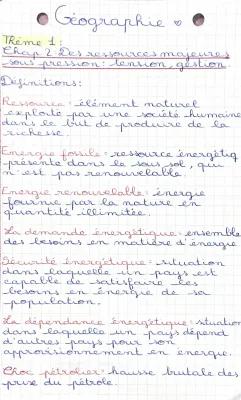 Géographie
Thème 1:
Chap 2 Des ressources majeures
sous pression: tension, gestion.
Définitions:
Ressource: élément naturel
exploité par une société humaine
dans le but de produire de la
richesse.
Energie fossile: ressource énergétiq
présente dans le sous sol, qui
n'est pas renouvelable.
Energie renouvelable: énergie
fournie par la nature en
quantité illimitée.
La demande énergétique: ensemble
des besoins en matière d'énergie
Sécurité énergétique: situation
dans laquelle un pays est
capable de satisfaire les
besoins en énergie de sa
population.
La dépendance énergétique: situation
dans laquelle un pays dépend
d'autres pays pour son
approvisionnement en énergie.
Choc pétrolier: hausse brutale des
prix du pétrole.